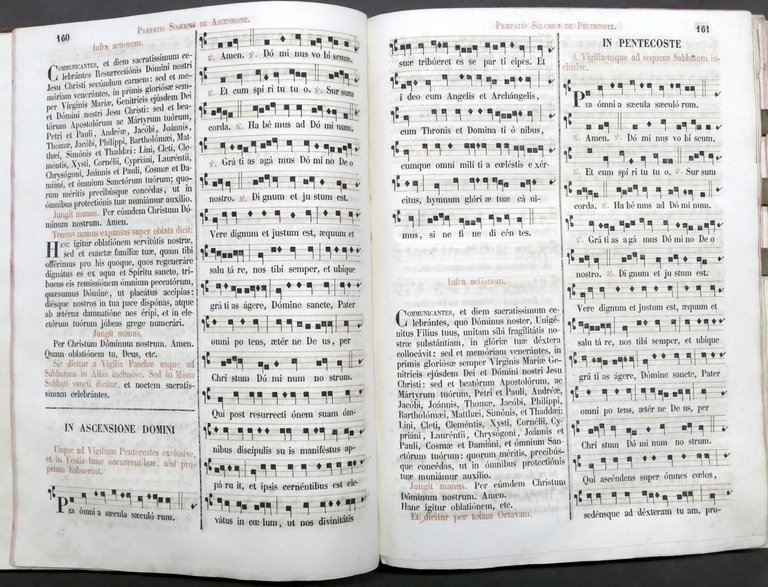 160
PRÆFATIO SOLEMNIS DE ASCENSIONE.
Infra actionem.
COMMUNICANTES, et diem sacratissimum ce-
lebrántes Resurrectiónis Dómini nostri
Jesu Christi secúndum carnem: sed et me-
móriam venerántes, in primis gloriósæ sem-
per Vírginis Maríæ, Genitrícis ejúsdem Dei
et Dómini nostri Jesu Christi: sed et bea-
tórum Apostolórum ac Mártyrum tuórum,
Petri et Pauli, Andréæ, Jacóbi, Joánnis,
Thomæ, Jacóbi, Philíppi, Bartholomǽi, Mat-
thǽi, Simónis et Thaddǽi: Lini, Cleti, Cle-
méntis, Xysti, Cornélii, Cypriáni, Lauréntii,
Chrysógoni, Joánnis et Pauli, Cosmæ et Da-
miáni, et ómnium Sanctórum tuórum; quo-
rum méritis precibúsque concédas, ut in
ómnibus protectiónis tuæ muniámur auxílio.
Jungit manus. Per eúmdem Christum Dó-
minum nostrum. Amen.
Tenens manus expansas super oblata dicit:
HANC ígitur oblatiónem servitútis nostræ,
sed et cunctæ famíliæ tuæ, quam tibi
offérimus pro his quoque, quos regeneráre
dignátus es ex aqua et Spíritu sancto, trí-
buens eis remissiónem ómnium peccatórum,
quǽsumus Dómine, ut placátus accépias:
diésque nostros in tua pace dispónas, atque
ab ætérna damnatióne nos éripi, et in ele-
ctórum tuórum júbeas grege numerári.
Jungit manus.
Per Christum Dóminum nostrum. Amen.
Quam oblatiónem tu, Deus, etc.
Sic dicitur a Vigilia Paschæ usque ad
Sabbatum in Albis inclusive. Sed in Missa
Sabbati sancti dicitur, et noctem sacratís-
simam celebrántes.
IN ASCENSIONE DOMINI
Usque ad Vigiliam Pentecostes exclusive,
et in Festis tunc occurrentibus, nisi pro-
priam habuerint.
Per ómni a sǽcula sæculó rum.
℟. Amen. ℣. Dó mi nus vo bís cum.
℟. Et cum spí ri tu tu o. ℣. Sur sum
corda. ℟. Ha bé mus ad Dó mi num.
℣. Grá ti as agá mus Dó mi no De o
nostro. ℟. Di gnum et ju stum est.
Vere dignum et justum est, æquum et
salu tá re, nos tibi semper, et ubíque
grá ti as ágere, Dómine sancte, Pater
omni po tens, ætér ne De us, per
Chri stum Dó mi num no strum.
Qui post resurrecti ónem suam óm-
nibus discípulis su is maniféstus ap-
pá ru it, et ipsis cernéntibus est ele-
vátus in cœ lum, ut nos divinitátis
PRÆFATIO SOLEMNIS DE PENTECOSTE.
161
suæ tribúeret es se par tí cipes. Et
í deo cum Angelis et Archángelis,
cum Thronis et Domina ti ó nibus,
cumque omni milí ti a cœléstis e xér-
citus, hymnum glóri æ tuæ cá ni-
mus, si ne fi ne di cén tes.
Infra actionem.
COMMUNICANTES, et diem sacratíssimum ce-
lebrántes, quo Dóminus noster, Unigé-
nitus Fílius tuus, unítam sibi fragilitátis no-
stræ substántiam, in glóriæ tuæ déxtera
collocávit: sed et memóriam venerántes, in
primis gloriósæ semper Vírginis Maríæ Ge-
nitrícis ejúsdem Dei et Dómini nostri Jesu
Christi: sed et beatórum Apostolórum, ac
Mártyrum tuórum, Petri et Pauli, Andréæ,
Jacóbi, Joánnis, Thomæ, Jacóbi, Philíppi,
Bartholomǽi, Matthǽi, Simónis, et Thaddǽi:
Lini, Cleti, Cleméntis, Xysti, Cornélii, Cy-
priáni, Lauréntii, Chrysógoni, Joánnis et
Pauli, Cosmæ et Damiáni, et ómnium San-
ctórum tuórum: quorum méritis, precibús-
que concédas, ut in ómnibus protectiónis
tuæ muniámur auxílio.
Jungit manus. Per eúmdem Christum
Dóminum nostrum. Amen.
Hanc ígitur oblatiónem, etc.
Et dicitur per totam Octavam.
IN PENTECOSTE
A Vigilia usque ad sequens Sabbatum in-
clusive.
Per ómni a sǽcula sæculó rum.
℟. Amen. ℣. Dó mi nus vo bís cum.
℟. Et cum spí ri tu tu o. ℣. Sur sum
corda. ℟. Ha bé mus ad Dó mi num.
℣. Grá ti as agá mus Dó mi no De o
nostro. ℟. Di gnum et ju stum est.
Vere dignum et justum est, æquum et
salu tá re, nos tibi semper, et ubíque
grá ti as ágere, Dómine sancte, Pater
omni po tens, ætér ne De us, per
Chri stum Dó mi num no strum.
Qui ascéndens super ómnes cœlos,
sedénsque ad déxteram tu am, pro-